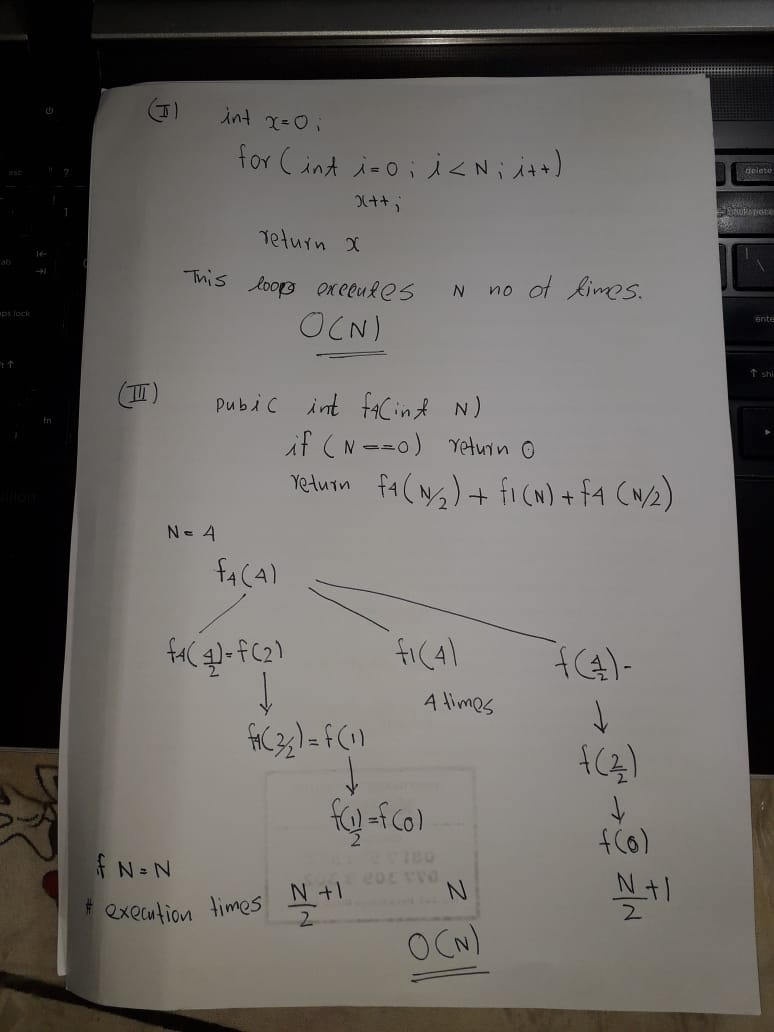 (II) int x=0;
for (int i=0; i<N; i++)
x++;
return x
This loops executes N no of times.
O(N)
(III) pubic int f4(int N)
if (N==0) return 0
return f4(N/2) + f1(N) + f4(N/2)
N = 4
f4(4)
f4(4/2)=f(2) f1(4) f(4/2)-
4 times
f4(2/2)=f(1) f(2/2)
f(1/2)=f(0) f(0)
if N=N
# execution times N/2 +1 N N/2 +1
O(N)
delete
backspace
enter
shift
esc
caps lock
fn